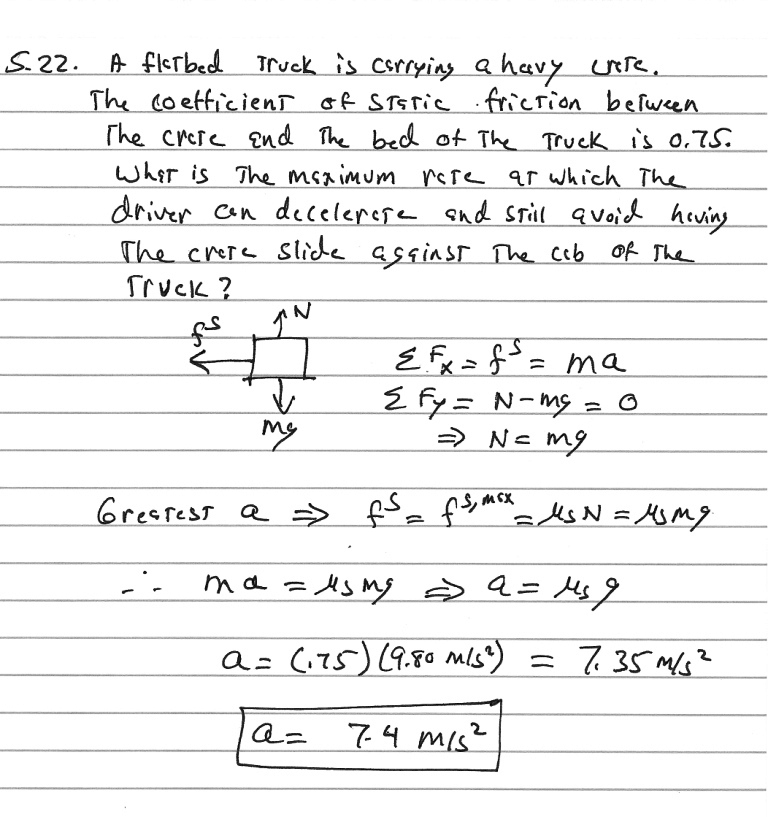 5.22. A flatbed truck is carrying a heavy crate.
The coefficient of static friction between
the crate and the bed of the truck is 0.75.
What is the maximum rate at which the
driver can decelerate and still avoid having
the crate slide against the cab of the
truck?
f^s
N
mg
Σ Fx = f^s = ma
Σ Fy = N - mg = 0
⇒ N = mg
Greatest a ⇒ f^s = f^s,max = μs N = μs mg
∴ ma = μs mg ⇒ a = μs g
a = (.75)(9.80 m/s²) = 7.35 m/s²
a = 7.4 m/s²